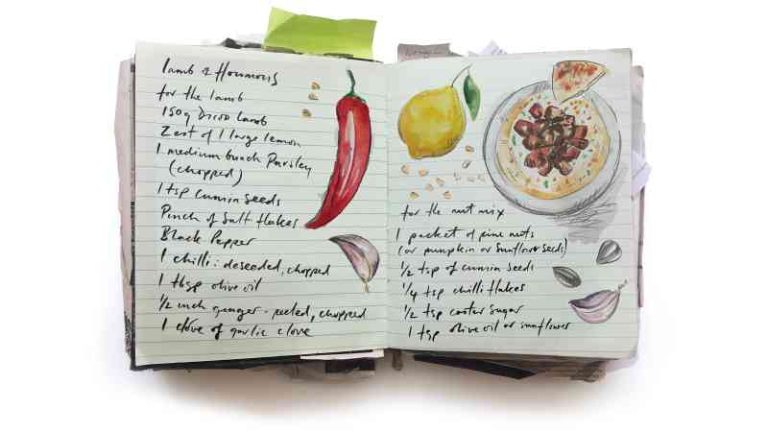 lamb & Houmous
for the lamb
150g Diced lamb
Zest of 1 large lemon
1 medium bunch Parsley
(chopped)
1 tsp cumin seeds
Pinch of Salt flakes
Black Pepper
1 chilli: deseeded, chopped
1 tbsp olive oil
1/2 inch ginger - peeled, chopped
1 clove of garlic clove
for the nut mix
1 packet of pine nuts
(or pumpkin or sunflower seeds)
1/2 tsp of cumin seeds
1/4 tsp chilli flakes
1/2 tsp caster sugar
1 tsp olive oil or sunflower